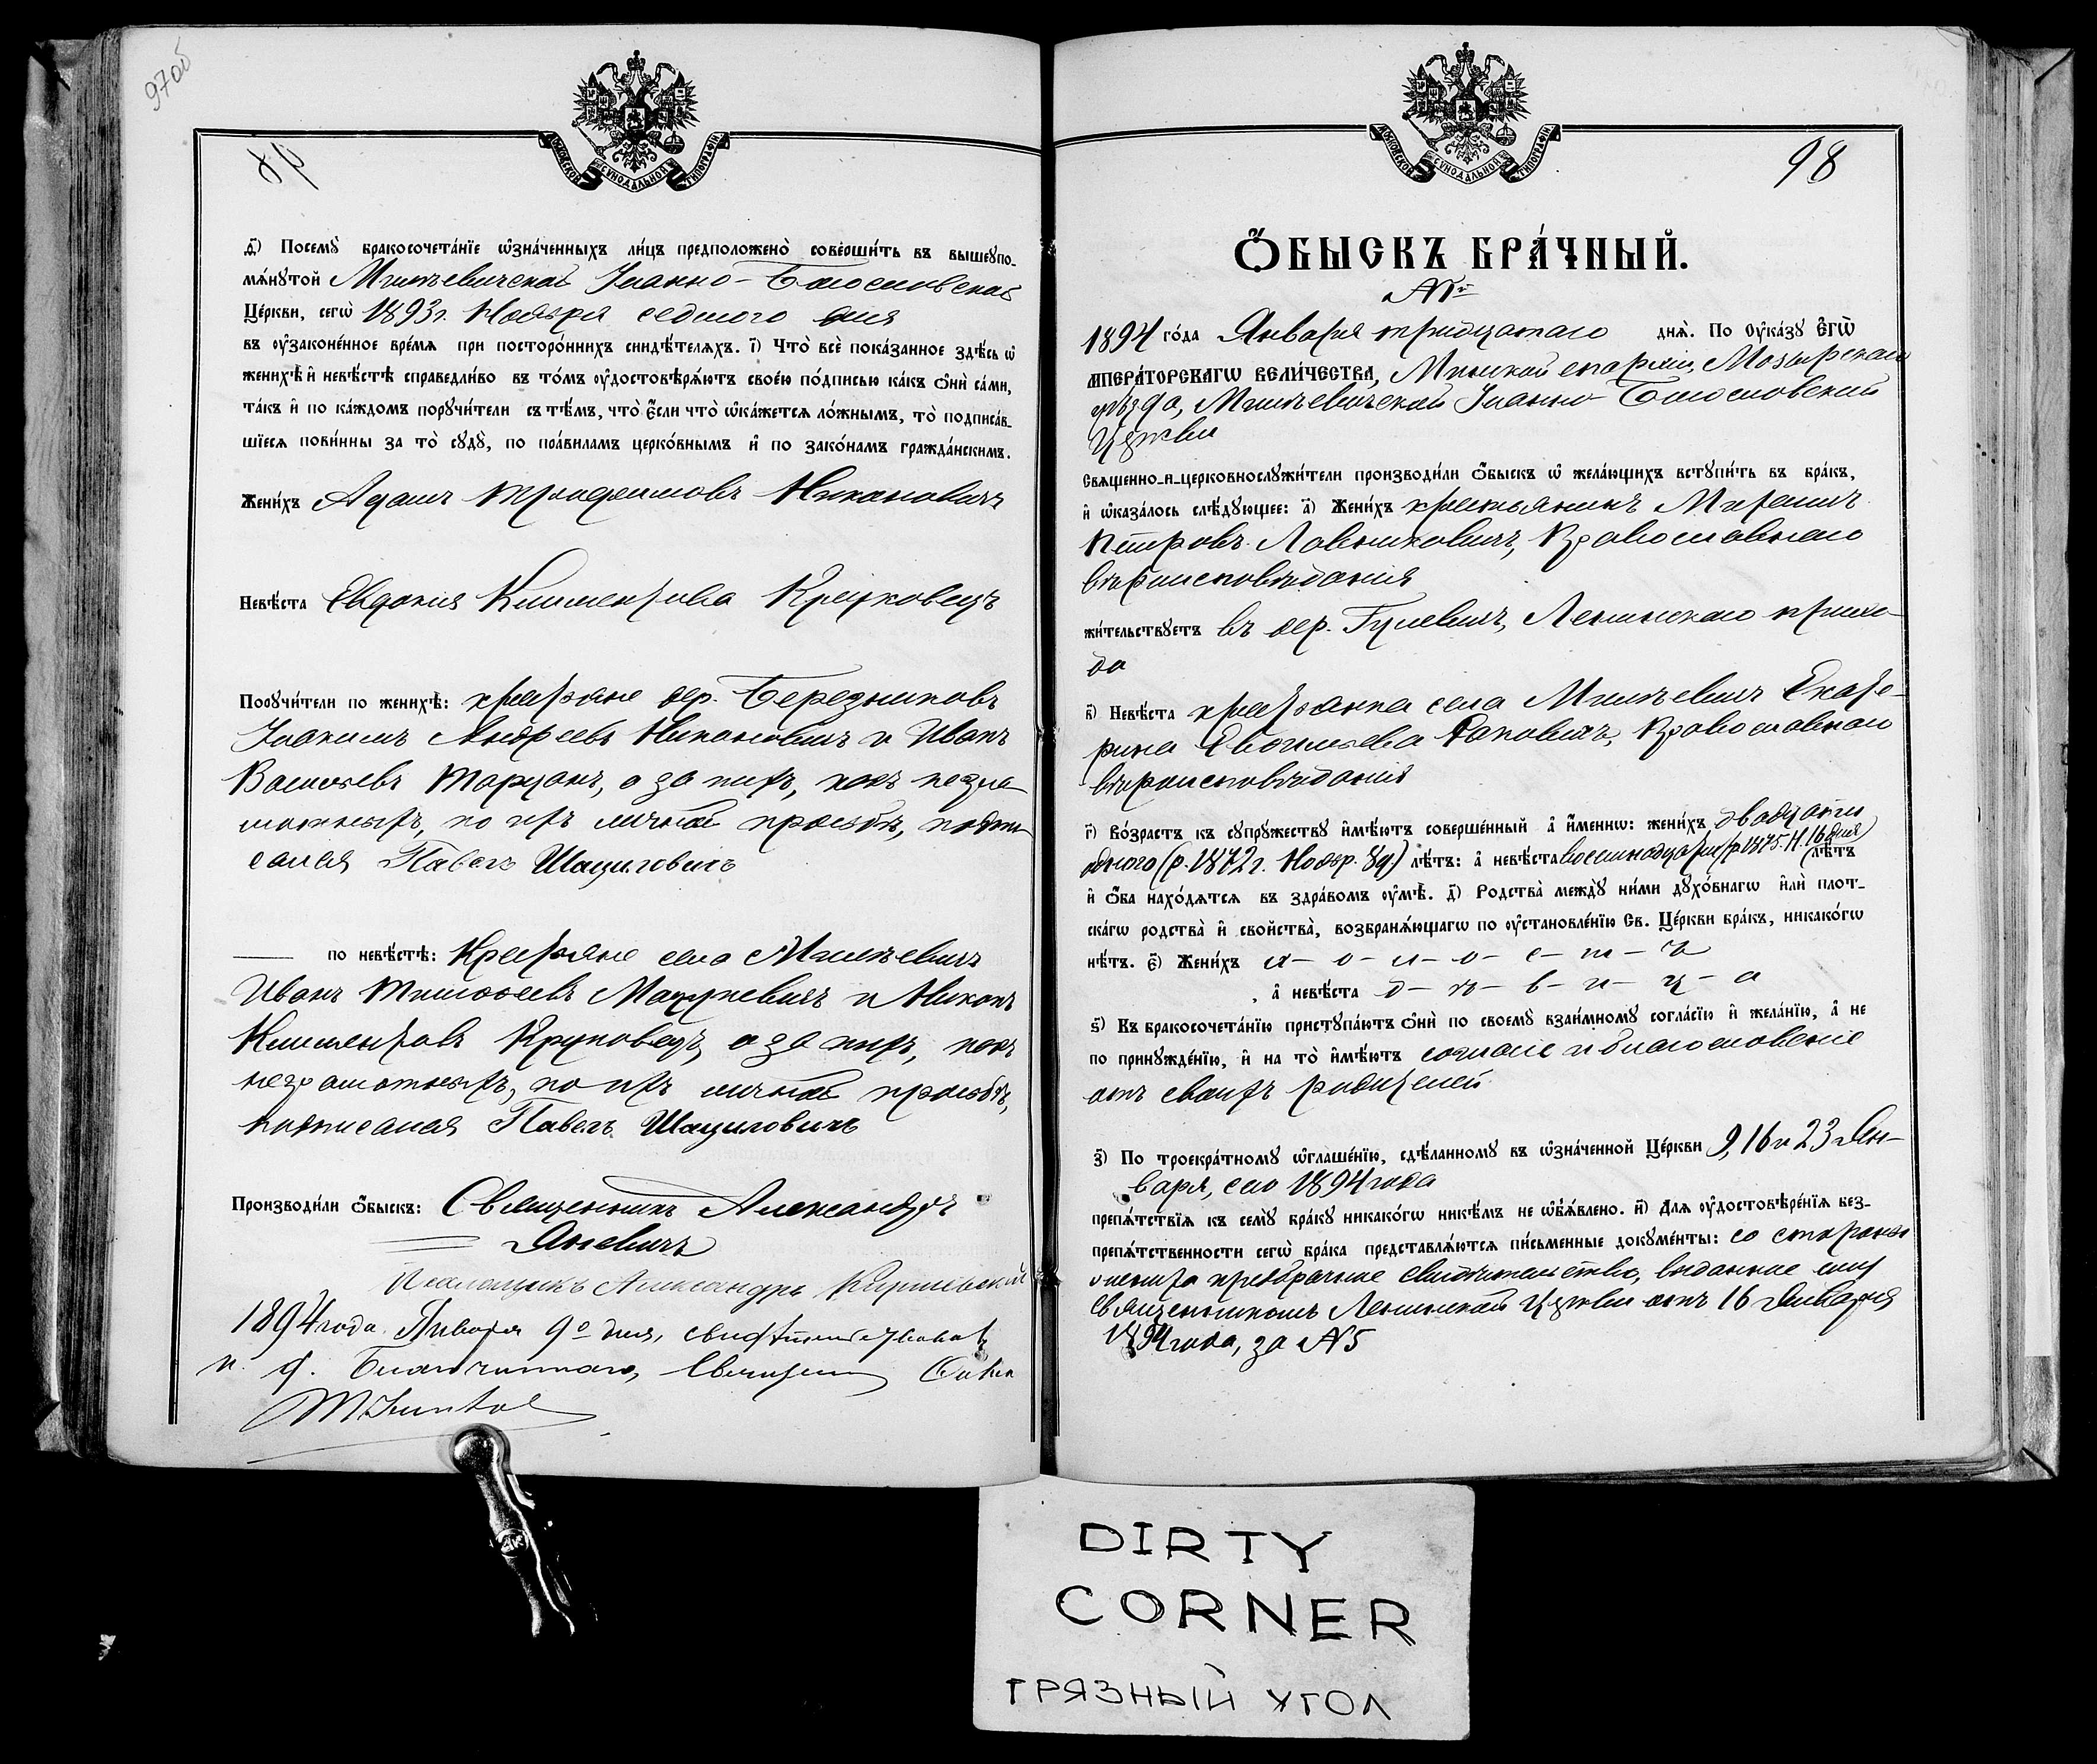 97об
98
МОСКОВСКОЙ СѴНОДАЛЬНОЙ ТИПОГРАФІИ
д҃і) Посемꙋ̀ бракосочета́нїе ѡ҆зна́ченныхъ ли́цъ предположено̀ соверши́ть въ вышеꙋпо-
мѧ́нꙋтой Мильевичской Іоанно-Богословской
Це́ркви, сегѡ̀ 1893 г. Ноября седьмого дня
въ ѹ҆зако́ненное вре́мѧ при посторо́ннихъ свидѣ́телѧхъ. і҃) Что̀ всѐ пока́занное здѣ́сь ѡ҆
женихѣ̀ и҆ невѣ́стѣ справедли́во въ то́мъ ѹ҆достовѣрѧ́ютъ свое́ю по́дписью ка́къ ѻ҆нѝ са́ми,
та́къ и҆ по ка́ждомъ порꙋчи́тели съ тѣ́мъ, что̀ є҆́сли что̀ ѡ҆ка́жетсѧ ло́жнымъ, то̀ подписа́в-
шїесѧ пови́нны за то̀ сꙋдꙋ̀, по пра́виламъ церко́внымъ и҆ по зако́намъ гражда́нскимъ.
Жени́хъ Адамъ Трофимовъ Никановичъ
Невѣ́ста Евдокия Климентова Круковецъ
Порꙋчи́тели по женихѣ̀: крестьяне дер. Березниковъ
Іоакимъ Андреевъ Никановичъ и Иванъ
Васильевъ Тарцанъ, а за нихъ, какъ негра-
мотныхъ, по ихъ личной просьбѣ, подпи-
сался Павелъ Шацилович
по невѣ́стѣ: Крестьяне села Мильевичъ
Иванъ Тимофеевъ Мацукевичъ и Никонъ
Климентовъ Круковецъ, а за нихъ, какъ
неграмотныхъ, по ихъ личной просьбѣ,
подписался Павелъ Шациловичъ
Производи́ли ѻ҆́быскъ: Священникъ Александръ
Яневичъ
Псаломщикъ Александръ
1894 года Января 9о дня, свидѣтельствовалъ
и. д. Благочиннаго, Священникъ
98
МОСКОВСКОЙ СѴНОДАЛЬНОЙ ТИПОГРАФІИ
Ѻ҆́БЫСКЪ БРА́ЧНЫЙ.
№
1894 го́да Января тридцатаго днѧ̀. По Оу҆ка́зꙋ Є҆гѡ̀
ИМПЕРА́ТОРСКАГѠ ВЕЛИ́ЧЕСТВА, Минской епархіи, Мозырскаго
уѣзда, Мильевичской Іоанно-Богословской
Церкви
Свѧщенно-и-церковнослꙋжи́тели производи́ли ѻ҆́быскъ ѡ҆ жела́ющихъ встꙋпи́ть въ бра́къ,
и҆ ѡ҆каза́лось слѣ́дꙋющее: а҃) Жени́хъ крестьянинъ Миронъ
Петровъ Ловыковичъ, Православнаго
вѣроисповѣданія
жи́тельствꙋетъ въ дер. Гулевичъ, Ленинскаго прихо-
да
в҃) Невѣ́ста крестьянка села Мильевичъ Екате-
рина Раковичъ, Православнаго
вѣроисповѣданія
г҃) Во́зрастъ къ сꙋпрꙋ́жествꙋ и҆мѣ́ютъ соверше́нный а҆ и҆́меннѡ: жени́хъ двадцати
одного (р. 1872 г. Ноябр. 8 д.) лѣ́тъ: а҆ невѣ́ста восемнадцати (р. 1875. Н. 16 дня) лѣ́тъ
и҆ ѻ҆́ба нахо́дѧтсѧ въ здра́вомъ ѹ҆мѣ̀. д҃) Родства̀ междꙋ̀ ни́ми дꙋхо́внагѡ и҆лѝ плот-
ска́гѡ родства̀ и҆ свойства̀, возбранѧ́ющагѡ по ѹ҆становле́нїю Св. Це́ркви бра́къ, никако́гѡ
нѣ́тъ. є҃) Жени́хъ х-о-л-о-с-т-ъ
а҆ невѣ́ста д-ѣ-в-и-ц-а
ѕ҃) Къ бракосочета́нїю пристꙋпа́ютъ ѻ҆нѝ по своемꙋ̀ взаи́мномꙋ согла́сїю и҆ жела́нїю, а҆ не
по принꙋжде́нїю, и҆ на то̀ и҆мѣ́ютъ согласіе и благословеніе
отъ своихъ родителей
з҃) По троекра́тномꙋ ѡ҆глаше́нїю, сдѣ́ланномꙋ въ ѡ҆зна́ченной Це́ркви 9, 16 и 23 Ян-
варя, сего 1894 года
препѧ́тствїѧ къ семꙋ̀ бра́кꙋ никако́гѡ никѣ́мъ не ѡ҆б̾ѧ́влено. и҃) Длѧ ѹ҆достовѣре́нїѧ без-
препѧ́тственности сегѡ̀ бра́ка представлѧ́ютсѧ пи́сьменные докꙋме́нты: со стороны
жениха предбрачное свидѣтельство, выданное ему
священникомъ Ленинской церкви отъ 16 Января
1894 года, за №5
DIRTY
CORNER
ГРЯЗНЫЙ УГОЛ